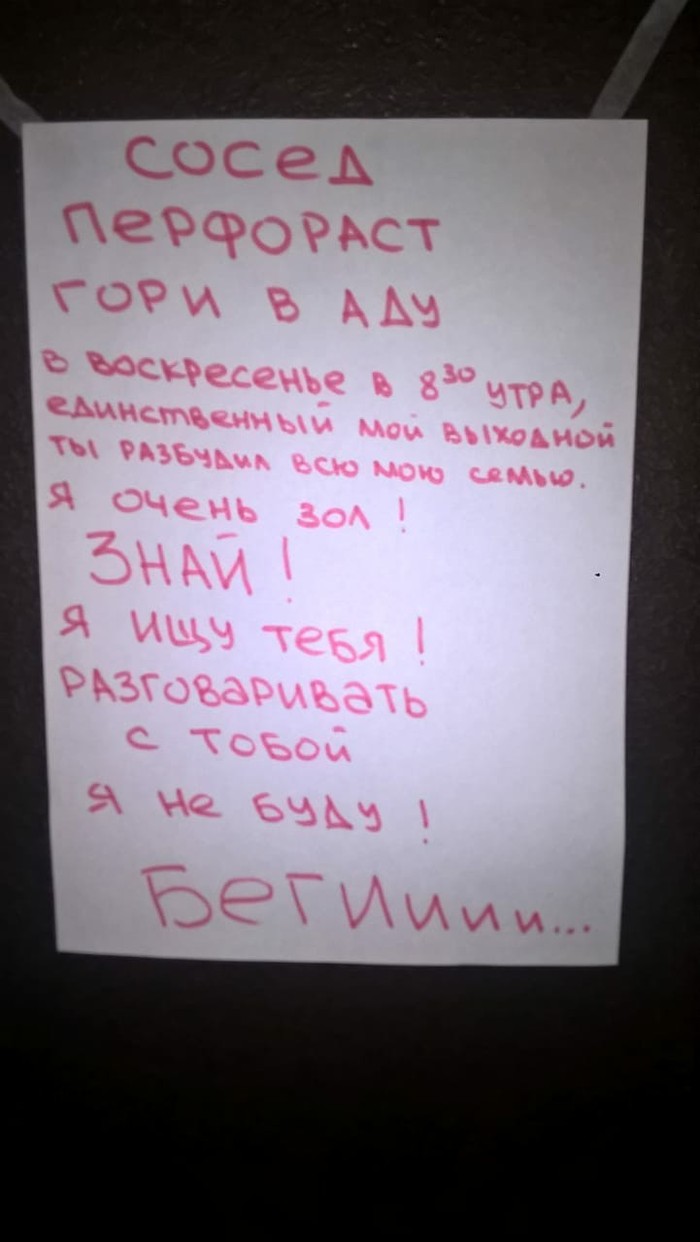 СОСЕД
ПЕРФОРАСТ
ГОРИ В АДУ
В ВОСКРЕСЕНЬЕ В 8³⁰ УТРА,
ЕДИНСТВЕННЫЙ МОЙ ВЫХОДНОЙ
ТЫ РАЗБУДИЛ ВСЮ МОЮ СЕМЬЮ.
Я ОЧЕНЬ ЗОЛ!
ЗНАЙ!
Я ИЩУ ТЕБЯ!
РАЗГОВАРИВАТЬ
С ТОБОЙ
Я НЕ БУДУ!
БЕГИиии...